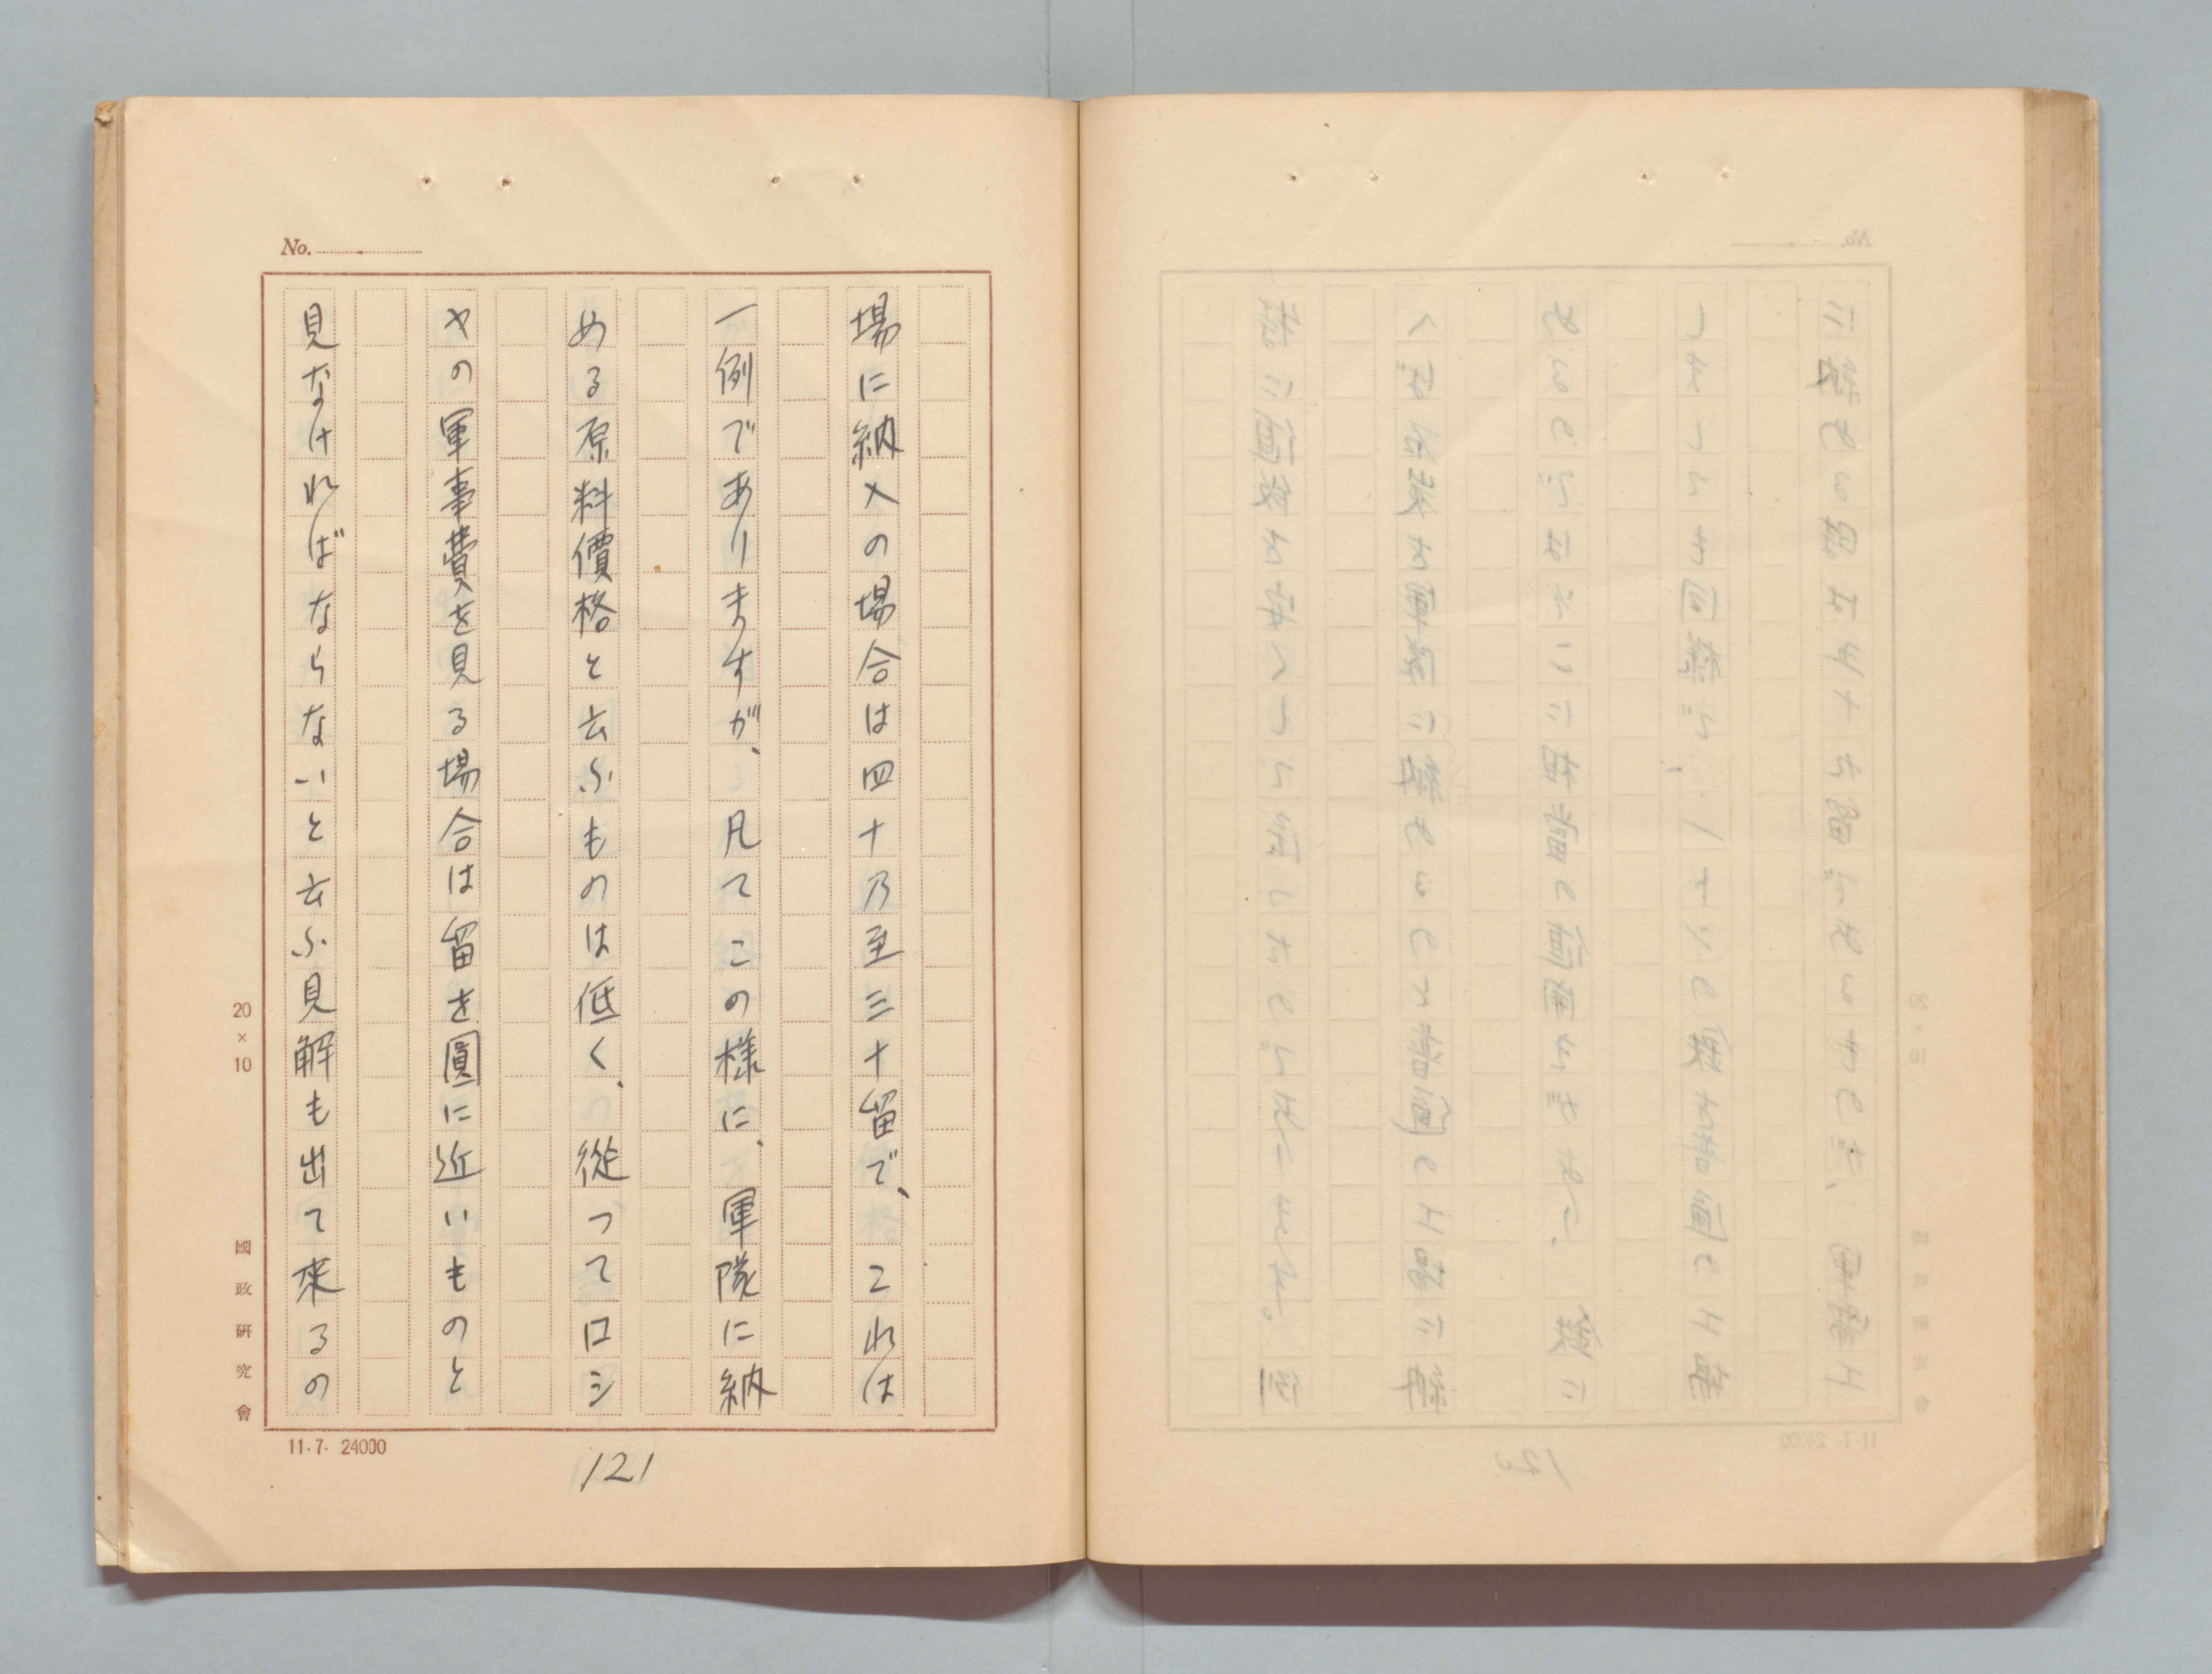 No.
場に納入の場合は四十乃至三十留で、これは
一例でありますが、凡てこの様に、軍隊に納
める原料價格と云ふものは低く、從つてロシ
ヤの軍事費を見る場合は留を圓に近いものと
見なければならないと云ふ見解も出て来るの
20×10
國政研究會
11.7. 24000
121